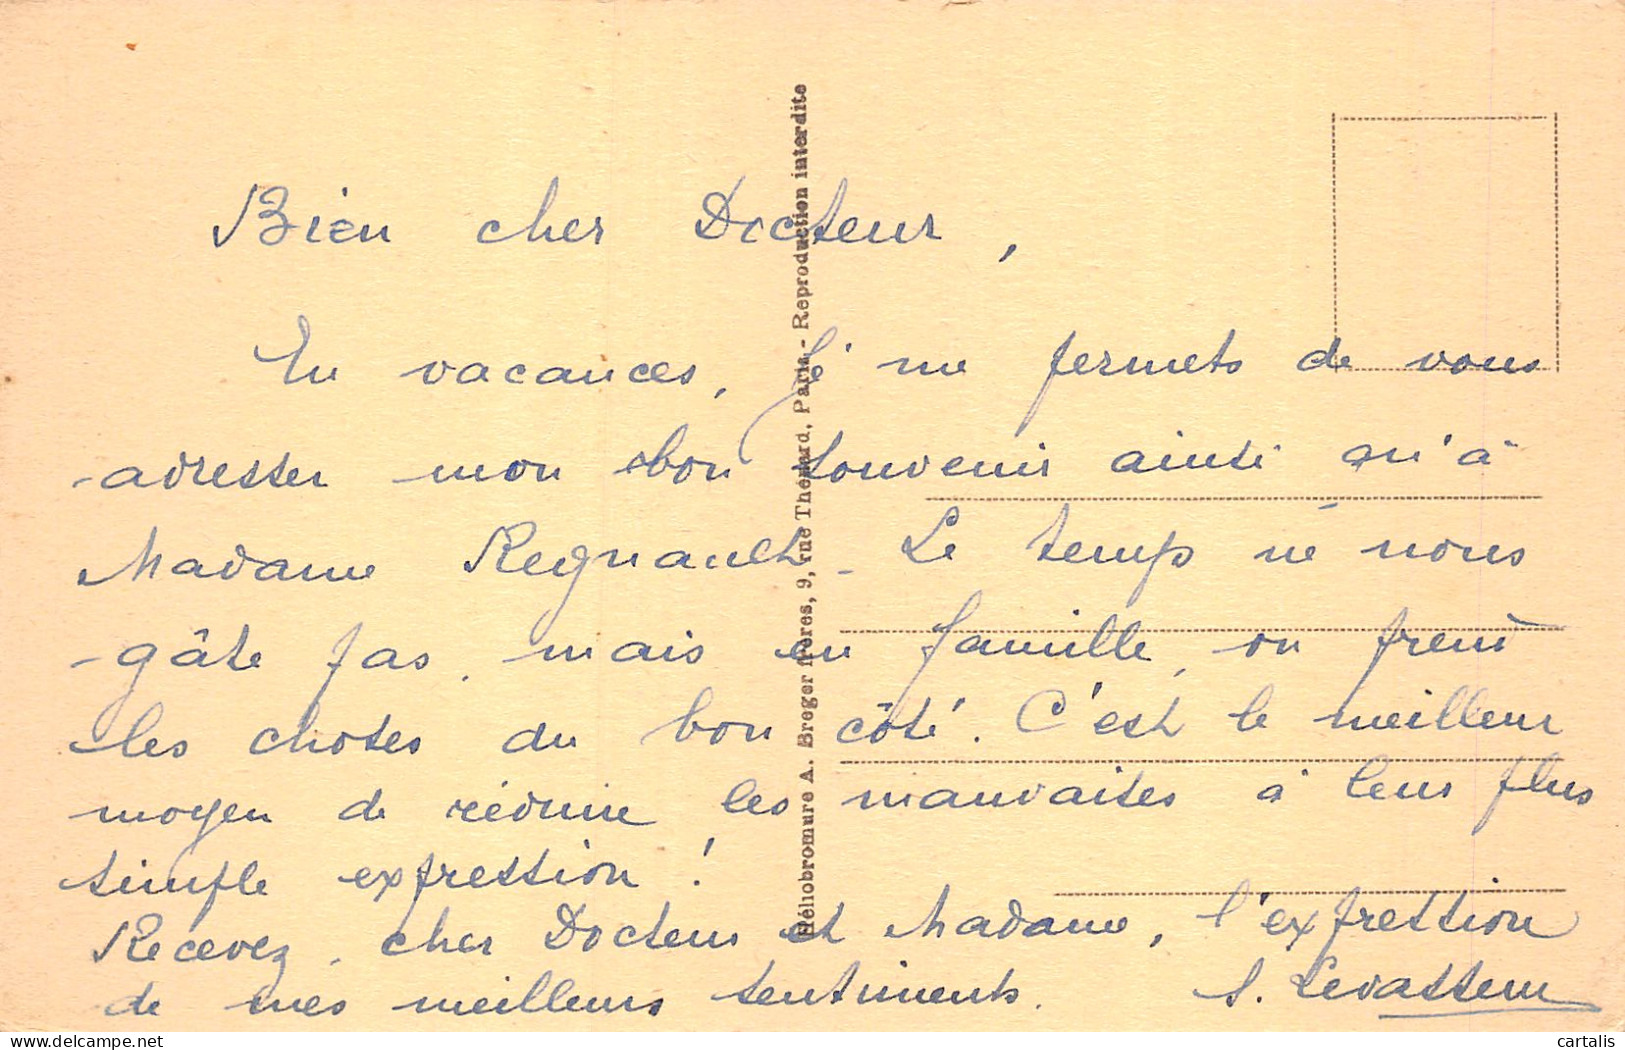 Bien cher Docteur,
En vacances, je me permets de vous
adresser mon bon souvenir ainsi qu'à
Madame Regnault. Le temps ne nous
gâte pas, mais en famille, on prend
les choses du bon côté. C'est le meilleur
moyen de réduire les mauvaises à leur plus
simple expression !
Recevez, cher Docteur et Madame, l'expression
de mes meilleurs sentiments. S. Levasseur
Héliobromure A. Breger frères, 9, rue Thénard, Paris - Reproduction interdite
delcampe.net
cartalis